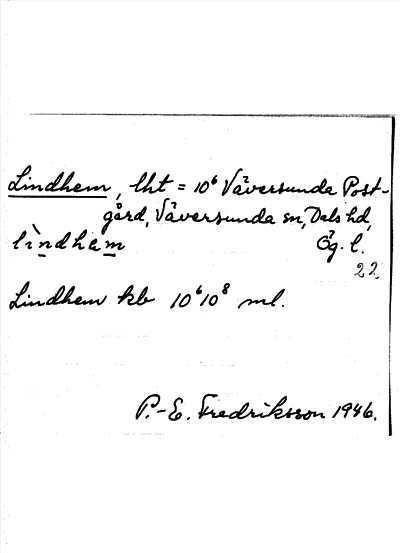 Lindhem, lht = 10⁶ Väversunda Post-
gård, Väversunda sn, Dals hd,
lìndhäm Ög. l.
22
Lindhem kb 10⁶10⁸ ml.
P.-E. Fredriksson 1946.